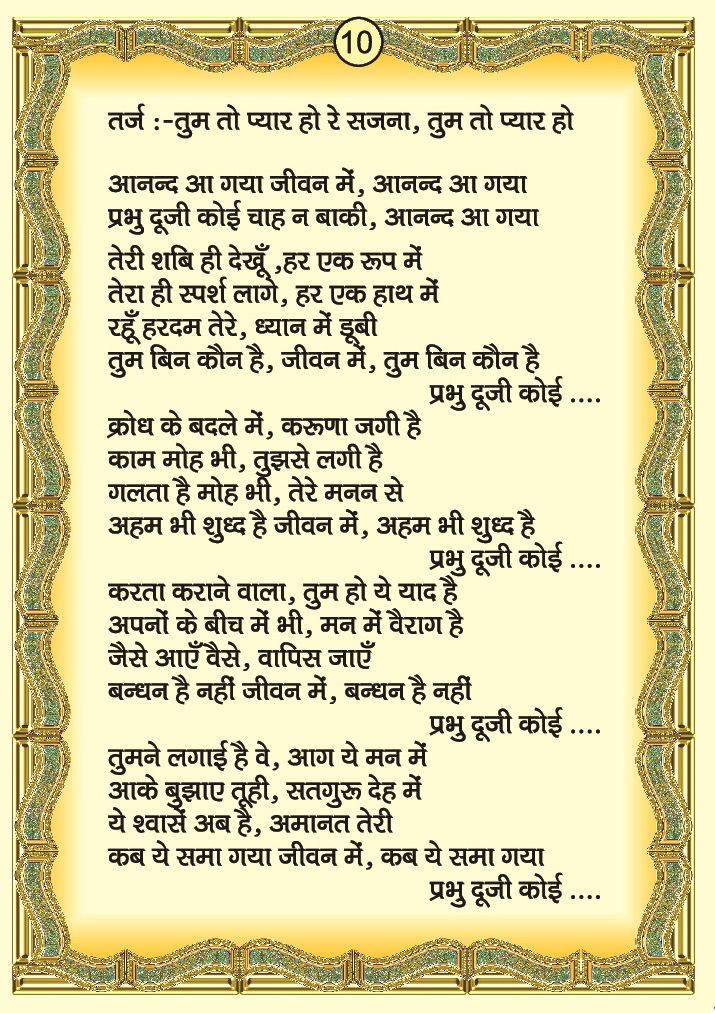 10
तर्ज :-तुम तो प्यार हो रे सजना, तुम तो प्यार हो
आनन्द आ गया जीवन में, आनन्द आ गया
प्रभु दूजी कोई चाह न बाकी, आनन्द आ गया
तेरी शबि ही देखूँ ,हर एक रूप में
तेरा ही स्पर्श लागे, हर एक हाथ में
रहूँ हरदम तेरे, ध्यान में डूबी
तुम बिन कौन है, जीवन में, तुम बिन कौन है
प्रभु दूजी कोई ....
क्रोध के बदले में, करूणा जगी है
काम मोह भी, तुझसे लगी है
गलता है मोह भी, तेरे मनन से
अहम भी शुध्द है जीवन में, अहम भी शुध्द है
प्रभु दूजी कोई ....
करता कराने वाला, तुम हो ये याद है
अपनों के बीच में भी, मन में वैराग है
जैसे आएँ वैसे, वापिस जाएँ
बन्धन है नहीं जीवन में, बन्धन है नहीं
प्रभु दूजी कोई ....
तुमने लगाई है वे, आग ये मन में
आके बुझाए तूही, सतगुरू देह में
ये श्वासें अब है, अमानत तेरी
कब ये समा गया जीवन में, कब ये समा गया
प्रभु दूजी कोई ....